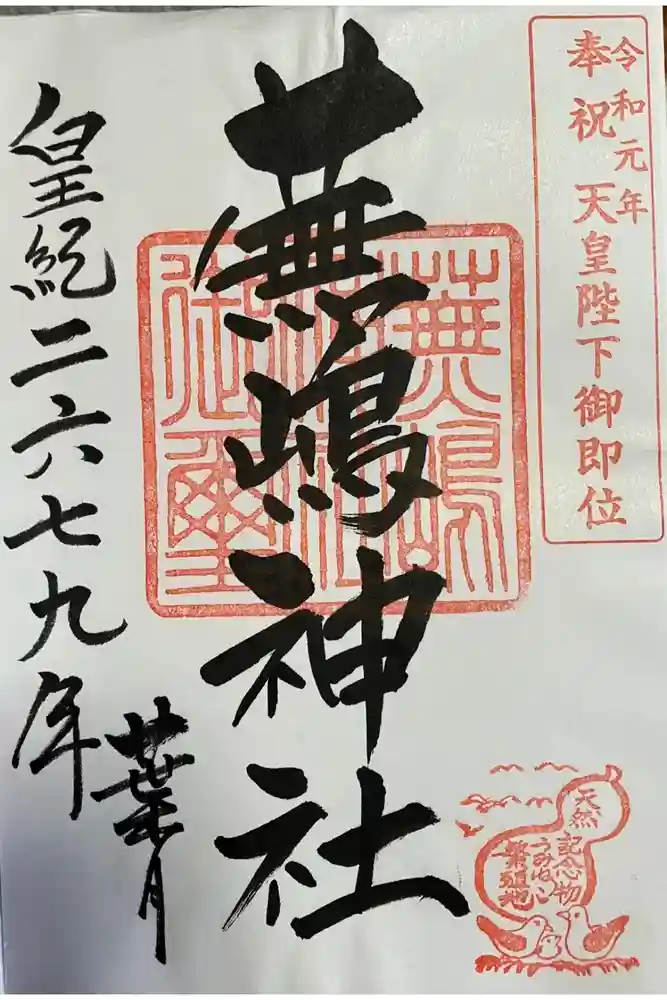 令和元年
奉祝 天皇陛下御即位
蕪嶋神社
蕪嶋神社御璽
皇紀二六七九年
葉月
天然
記念物
うみねこ
繁殖地